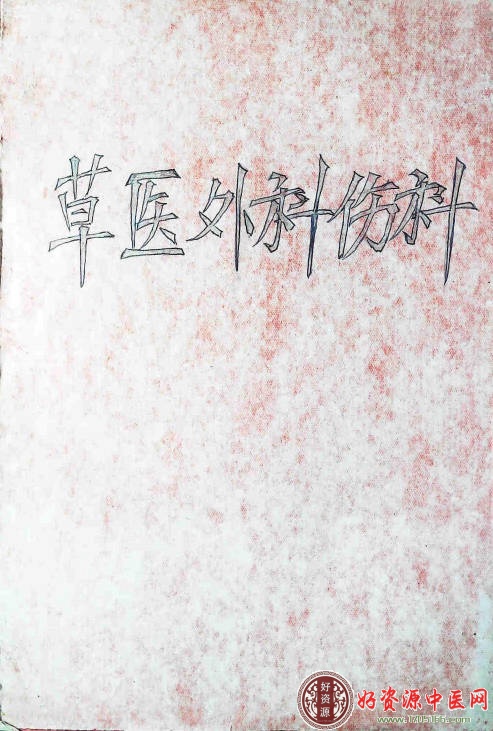 草医外科伤科
好资源
好资源中医网